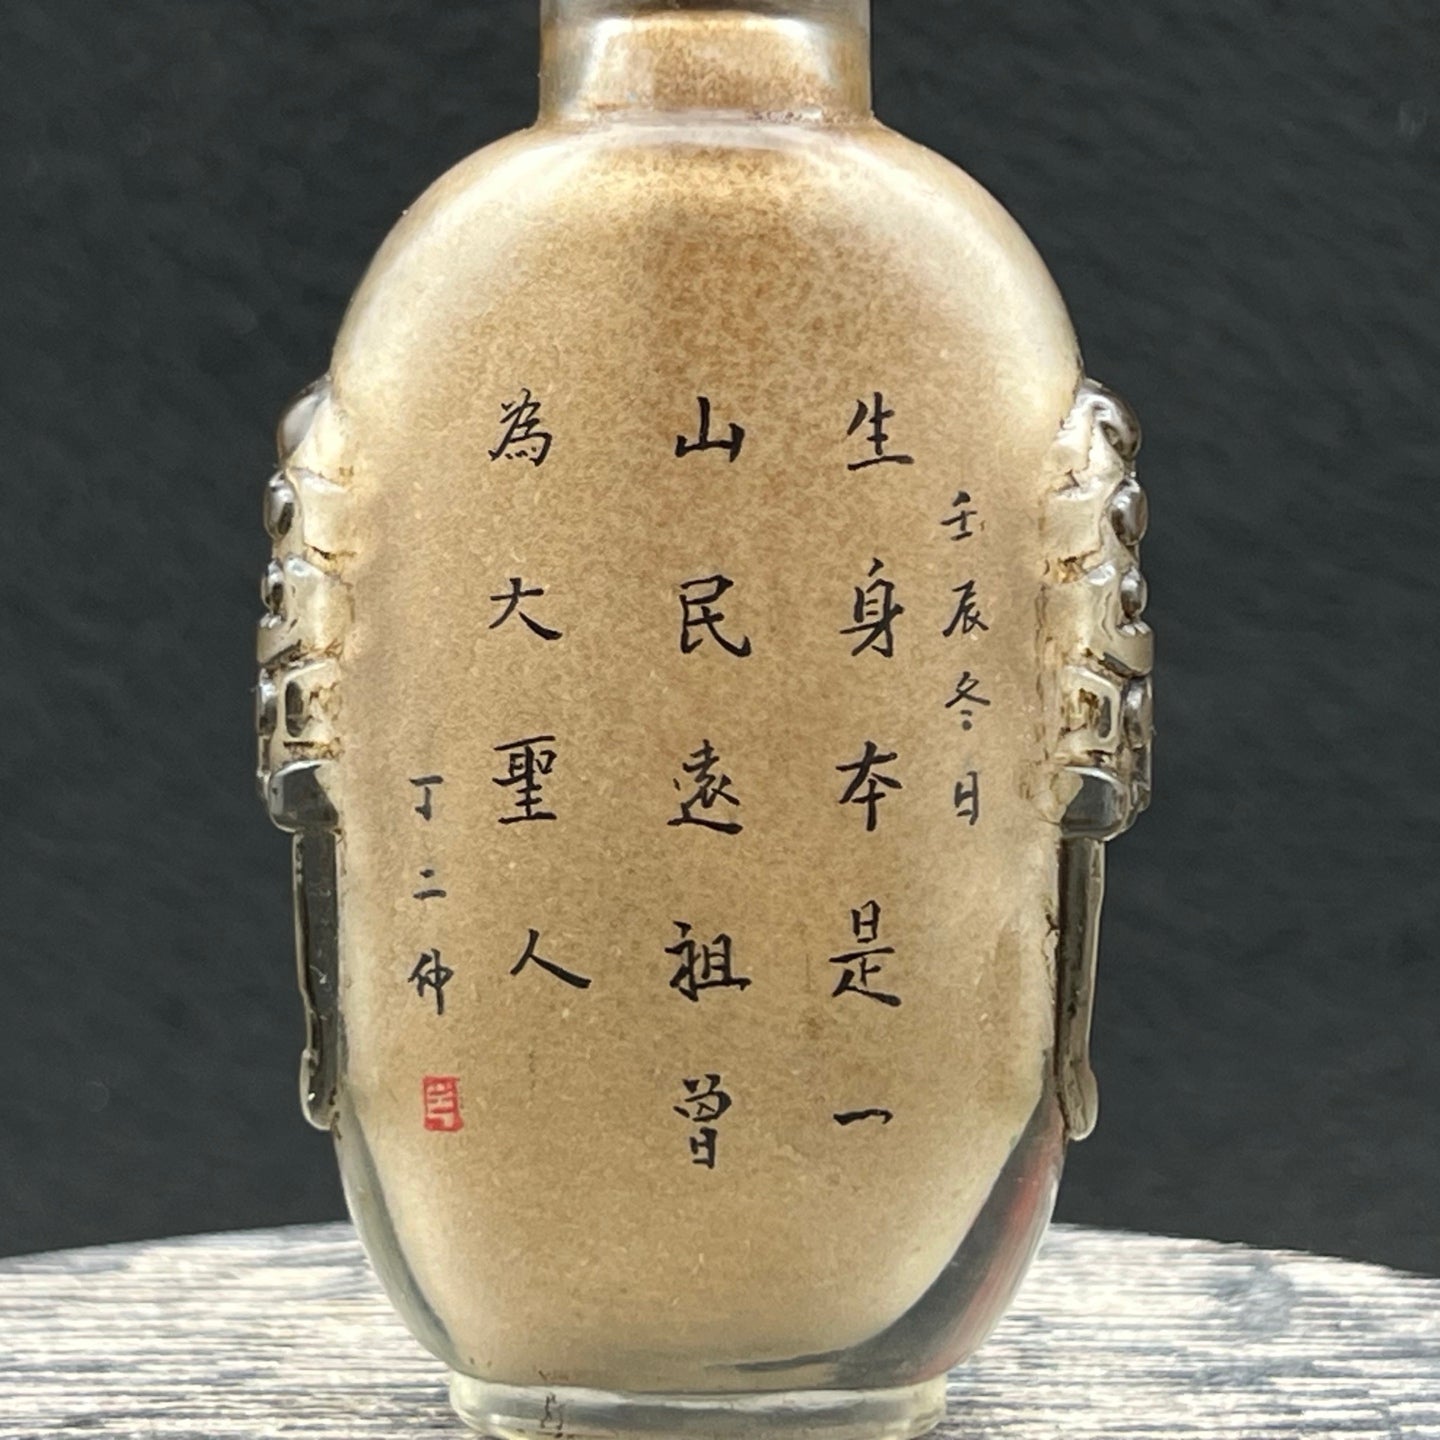 壬辰冬日
生身本是一
山民遠祖曾
為大聖人
丁二仲